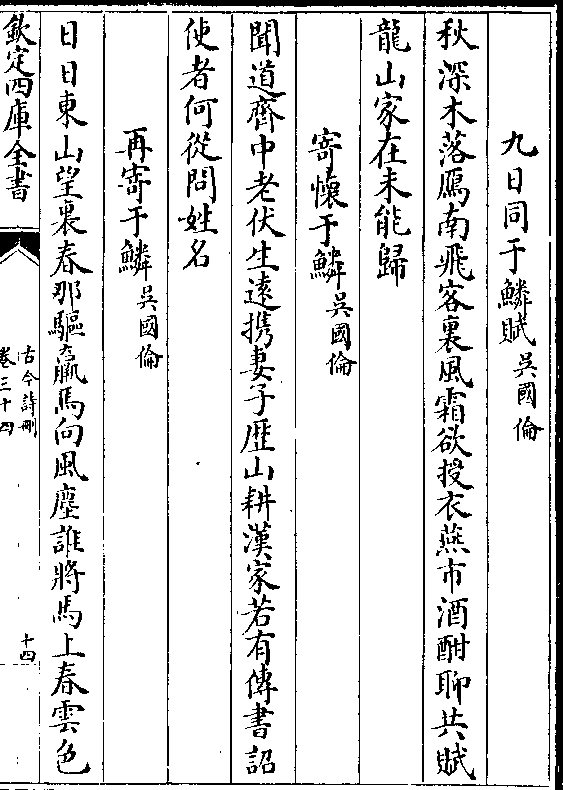 九日同于鱗賦 吳國倫
秋深木落鴈南飛客裏風霜欲授衣燕市酒酣聊共賦
龍山家在未能歸
寄懷于鱗 吳國倫
聞道齊中老伏生遠携妻子歷山耕漢家若有傳書詔
使者何從問姓名
再寄于鱗 吳國倫
日日東山望裏春那驅羸馬向風塵誰將馬上春雲色
欽定四庫全書
古今詩刪
卷三十四
十四